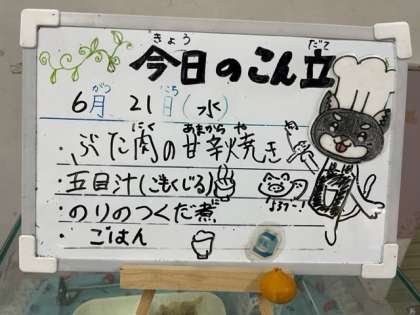 今日のこん立
きょう だて
6月 21日 (水)
がつ にち
・ぶた肉の甘辛焼き
にく あまから や
・五目汁(ごもくじる)
・のりのつくだ煮
に
・ごはん